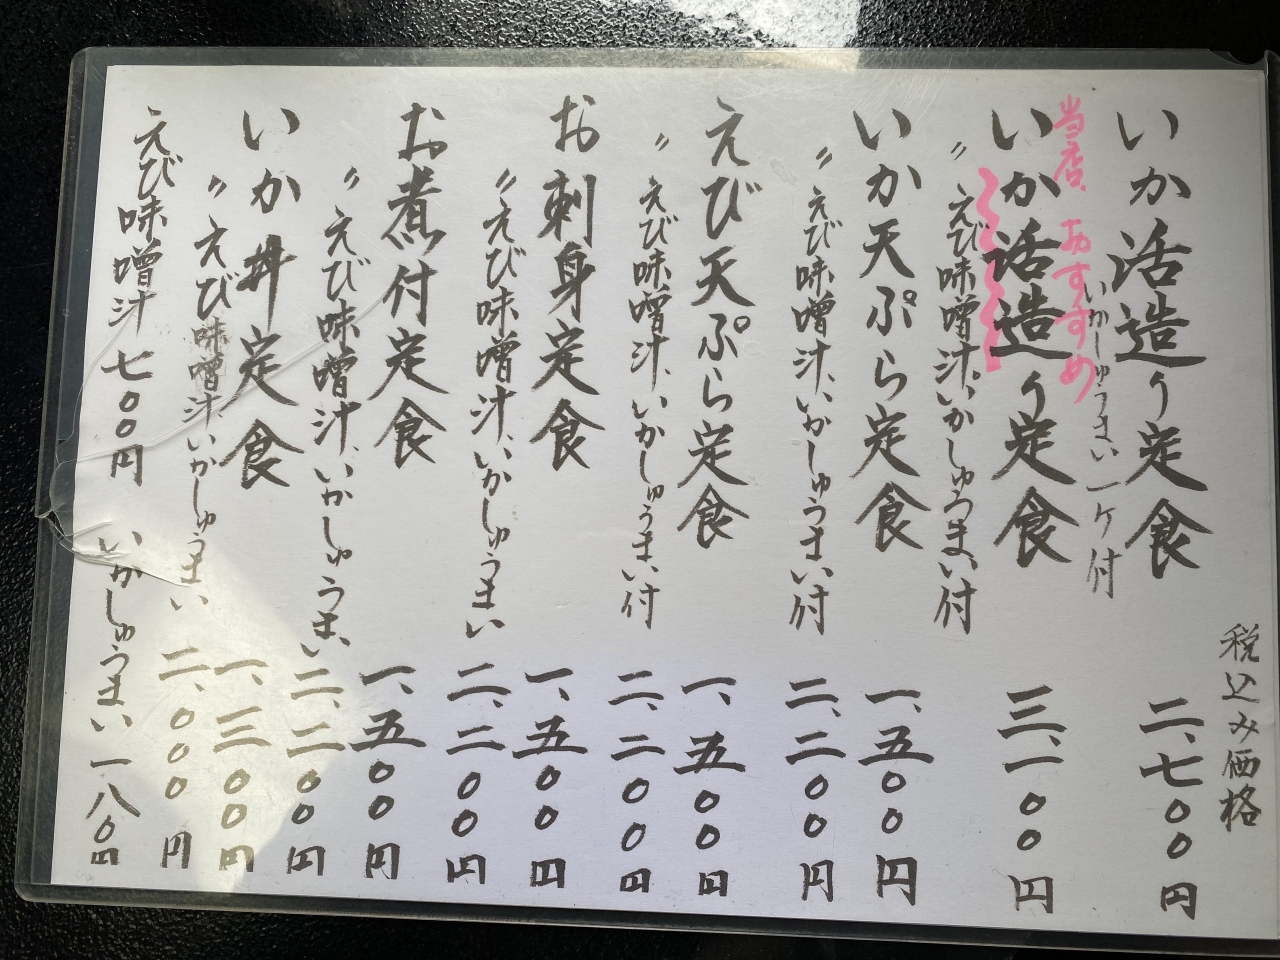 税込み価格
いか活造り定食 二、七〇〇円
いかしゅうまい一ヶ付
当店、おすすめ
いか活造り定食 三、一〇〇円
〃 えび味噌汁、いかしゅうまい付
いか天ぷら定食 一、五〇〇円
〃 えび味噌汁、いかしゅうまい付 二、二〇〇円
えび天ぷら定食 一、五〇〇円
〃 えび味噌汁、いかしゅうまい付 二、二〇〇円
お刺身定食 一、五〇〇円
〃 えび味噌汁、いかしゅうまい 二、二〇〇円
お煮付定食 一、五〇〇円
〃 えび味噌汁、いかしゅうまい 二、二〇〇円
いか丼定食 一、三〇〇円
〃 えび味噌汁、いかしゅうまい 二、〇〇〇円
えび味噌汁 七〇〇円 いかしゅうまい 一八〇円